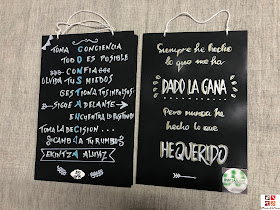 TOMA CONCIENCIA
TODO ES POSIBLE
CONFIA
OLVIDA TUS MIEDOS
GESTIONA TUS IMPULSOS
SIGUE ADELANTE
ENCUENTRA LO POSITIVO
TOMA LA DECISION
CAMBIA TU RUMBO
EKINTZA ALUVIZ
Siempre he hecho
lo que me ha
DADO LA GANA
Pero nunca he
hecho lo que
HE QUERIDO